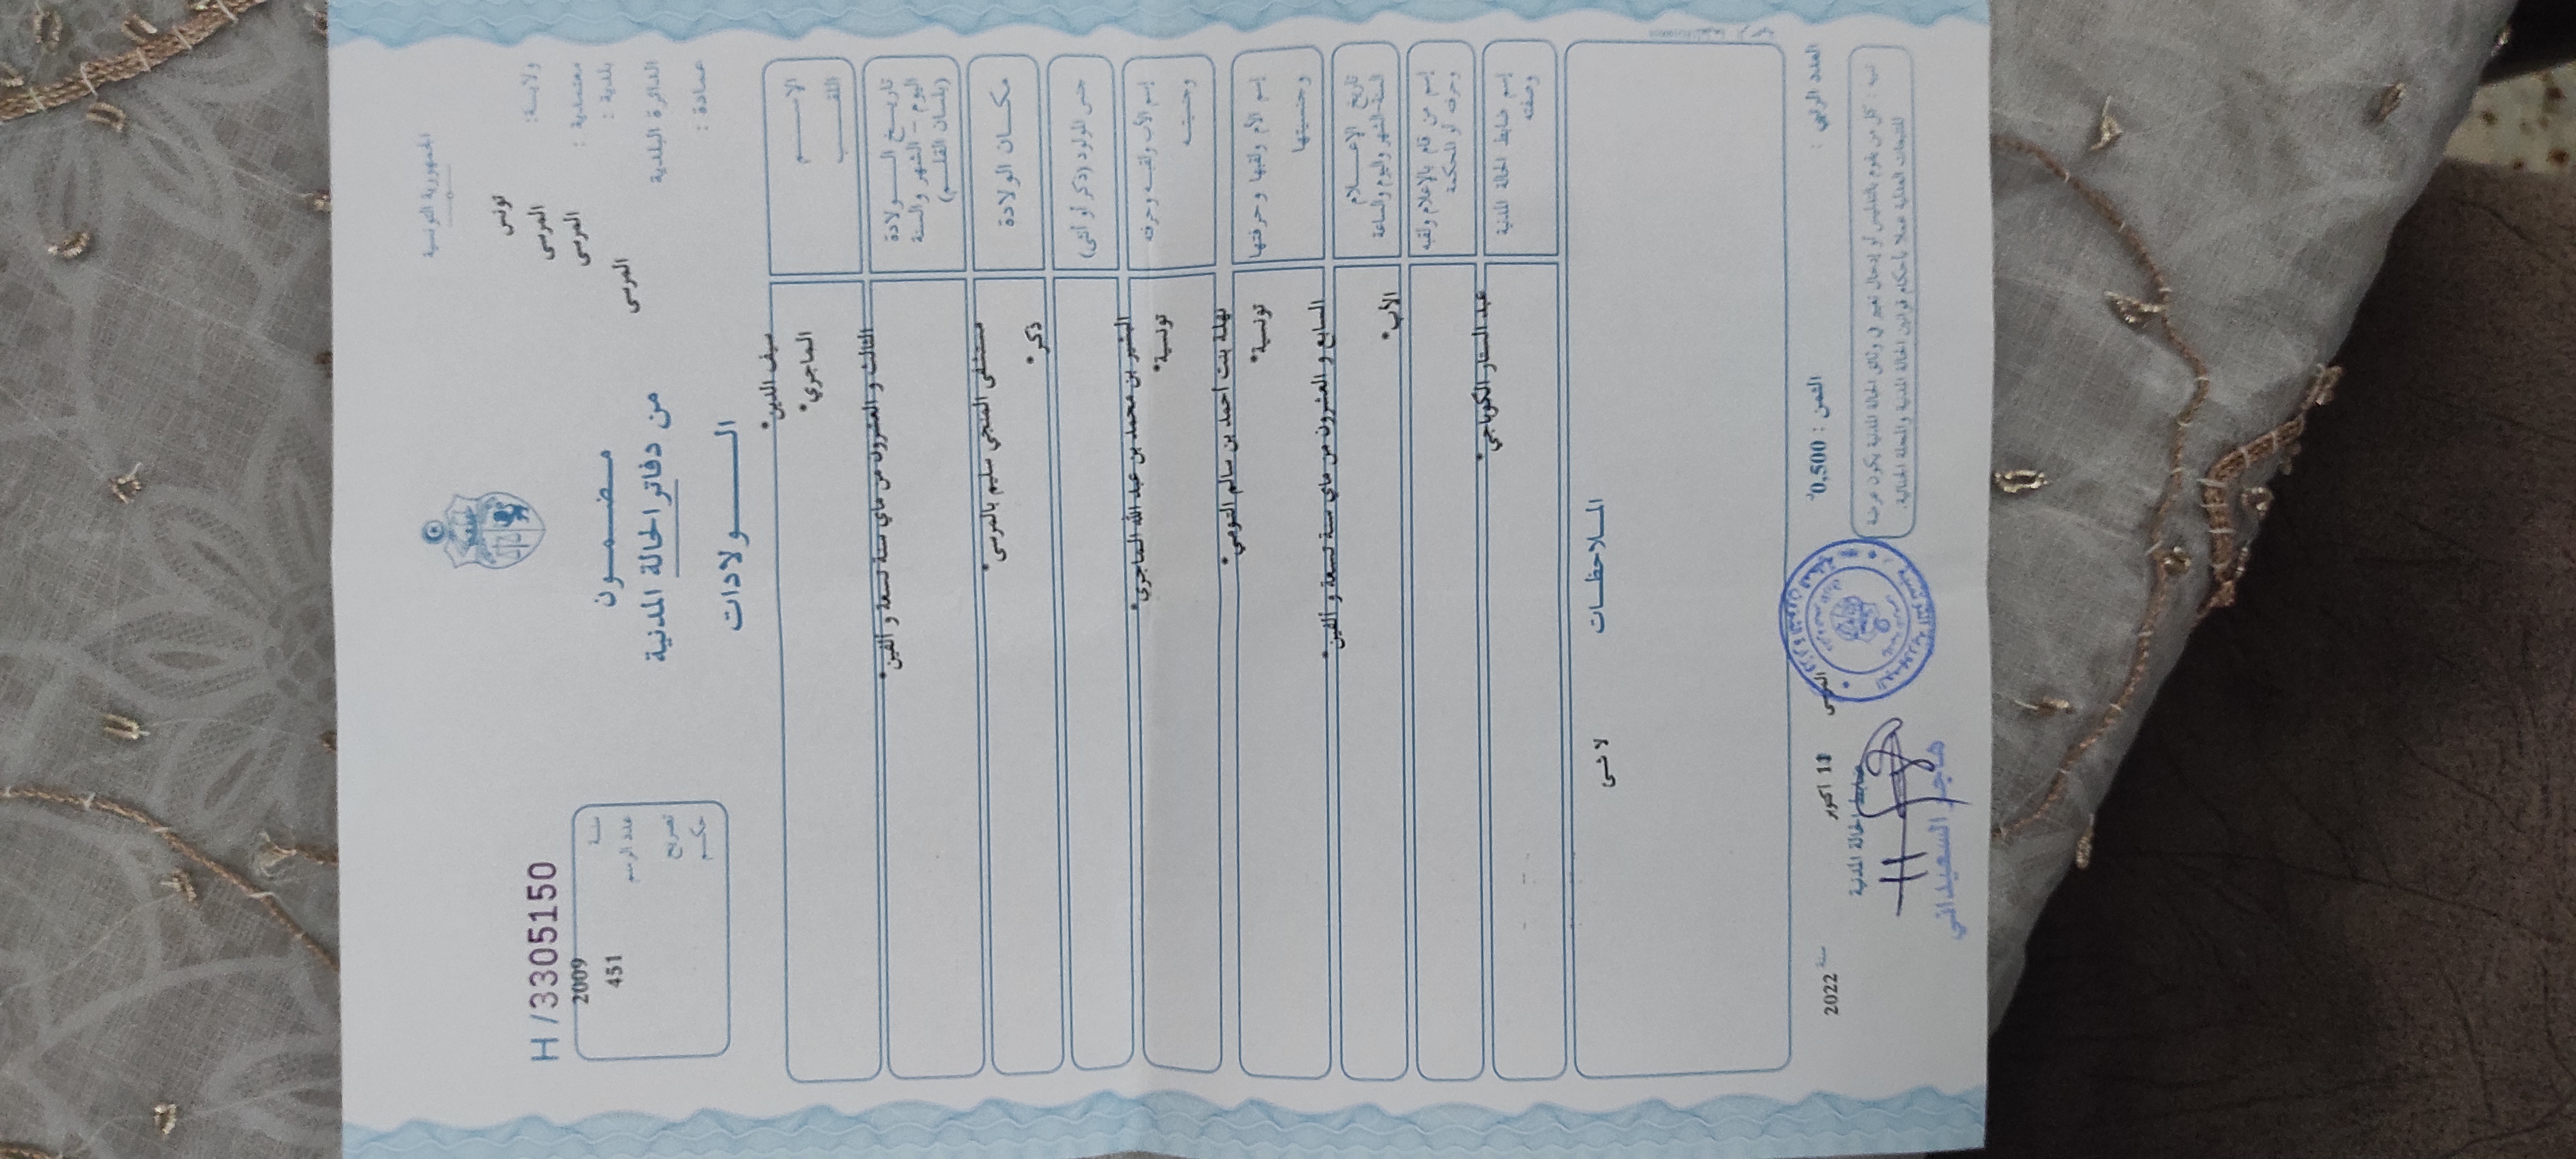 الجمهورية التونسية
ولاية: تونس
معتمدية: المرسى
بلدية: المرسى
الدائرة البلدية المرسى
عمادة:
H/33051150
سنة 2009
عدد الرسم 451
تصريح
حكم
مضمون
من دفاتر الحالة المدنية
الولادات
الاسم سيف الدين*
اللقب الماجري*
تاريخ الولادة
اليوم - الشهر والسنة
(بلسان القلم)
الثالث و العشرون من ماي سنة تسعة و الفين*
مكان الولادة مستشفى المنجي سليم بالمرسى*
جنس المولود (ذكر أو أنثى) ذكر*
إسم الأب ولقبه وحرفته البشير بن محمد بن عبد الله الماجري*
وجنسيته تونسية*
إسم الأم ولقبها وحرفتها نهلة بنت احمد بن سالم
وجنسيتها تونسية*
تاريخ الإعلام
السنة الشهر واليوم والساعة
السابع و العشرون من ماي سنة تسعة و الفين*
إسم من قام بالإعلام ولقبه
وحرفته أو المحكمة
الأب*
إسم ضابط الحالة المدنية
وصفته
عبد الستار الكوباجي*
الملاحظات
لا شىء
العدد الرتبي:
الثمن: 0,500د
المرسى 11 اكتوبر سنة 2022
ضابط الحالة المدنية
هاجر السعيداني
تنبيه: كل من يقوم بالتدليس أو إدخال تغيير في وثائق الحالة المدنية يكون عرضة
للتتبعات العدلية عملا بأحكام قوانين الحالة المدنية والمجلة الجنائية.